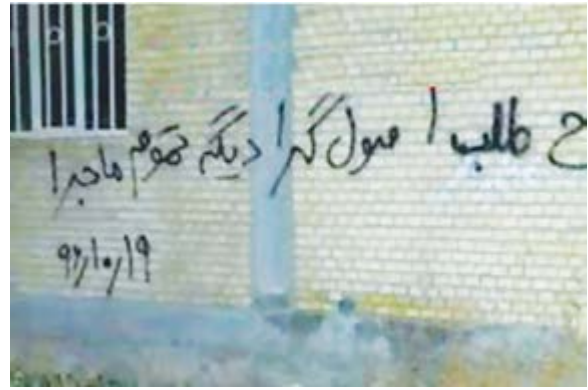 ح طلب اصول گرا دیگه تمومه ماجرا
۹۶/۱۰/۱۹